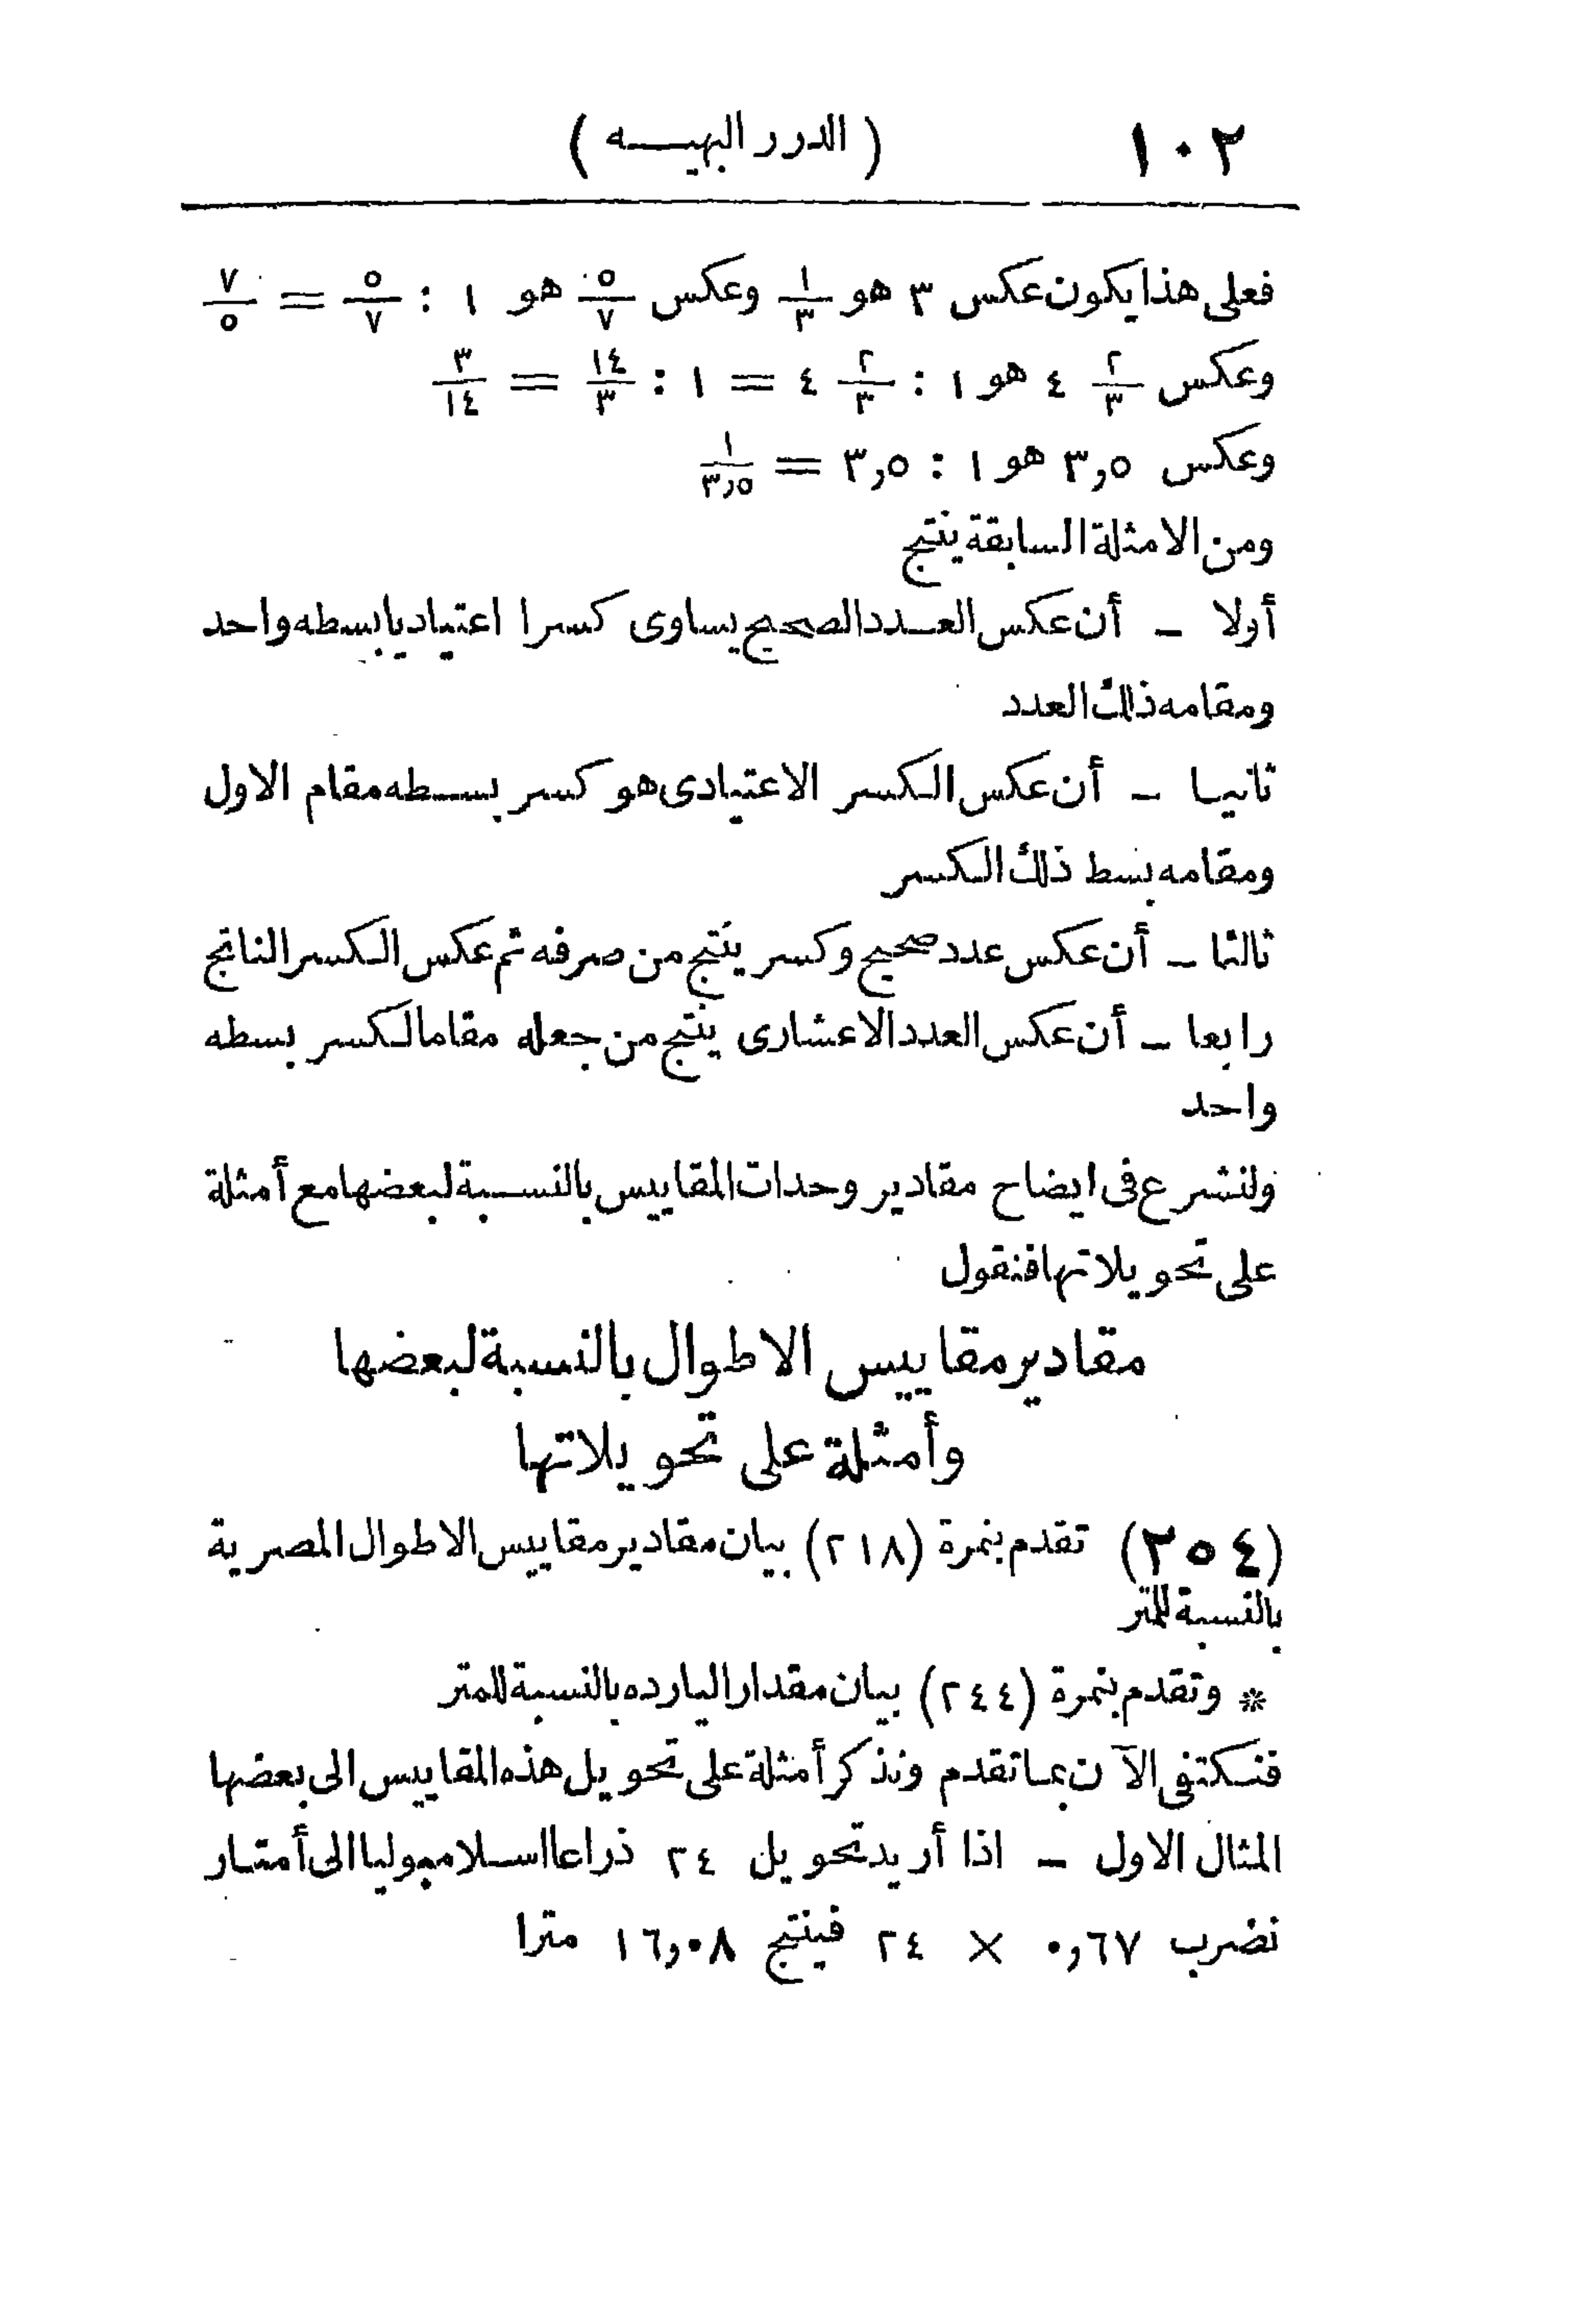 ١٠٢ ( الدرر البهيـــه )
فعلى هذا يكون عكس ٣ هو ١/٣ وعكس ٥/٧ هو ١ : ٥/٧ = ٧/٥
وعكس ٢/٣ ٤ هو ١ : ٢/٣ ٤ = ١ : ١٤/٣ = ٣/١٤
وعكس ٣,٥ هو ١ : ٣,٥ = ١/٣,٥
ومن الامثلة السابقة ينتج
أولا - أن عكس العـدد الصحيح يساوى كسرا اعتياديا بسطه واحد
ومقامه ذلك العدد
ثانيـا - أن عكس الكسر الاعتيادى هو كسر بسـطه مقام الاول
ومقامه بسط ذلك الكسر
ثالثا - أن عكس عدد صحيح وكسر ينتج من صرفه ثم عكس الكسر الناتج
رابعا - أن عكس العدد الاعشارى ينتج من جعله مقاما لكسر بسطه
واحد
ولنشرع فى ايضاح مقادير وحدات المقاييس بالنسـبة لبعضها مع أمثلة
على تحويلاتها فنقول
مقادير مقاييس الاطوال بالنسبة لبعضها
وأمثلة على تحويلاتها
(٢٥٤) تقدم بنمرة (٢١٨) بيان مقادير مقاييس الاطوال المصرية
بالنسبة للمتر
* وتقدم بنمرة (٢٤٤) بيان مقدار اليارده بالنسبة للمتر
فنكتفى الآن بمـا تقدم ونذكر أمثلة على تحويل هذه المقاييس الى بعضها
المثال الاول - اذا أريد تحويل ٢٤ ذراعا اسـلامبوليا الى أمتـار
نضرب ٠,٦٧ × ٢٤ فينتج ١٦,٠٨ مترا